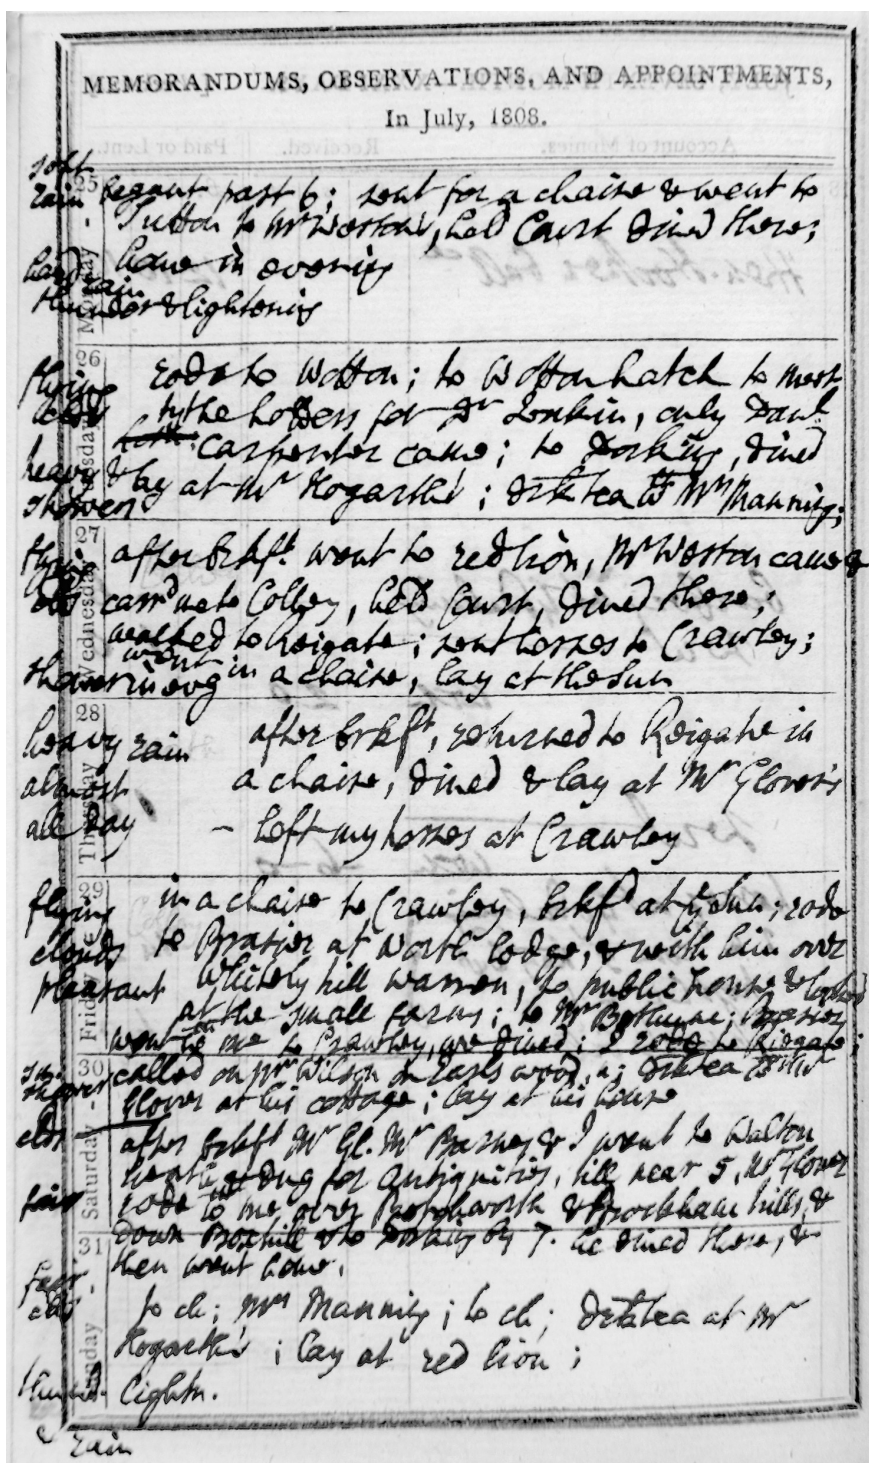 MEMORANDUMS, OBSERVATIONS, AND APPOINTMENTS,
In July, 1808.
25 Monday
soft
rain
past 6; sent for a chaise & went to
Sutton to Mr Weston's, held Court dined there;
home in evening
hard rain
thunder & lightening
26
flying
clds
heavy
showers
rode to Wotton; to Wotton hatch to meet
the holders for Dr Jenkin, only Danl
Carpenter came; to Dorking, dined
& lay at Mr Hogarth's; drk tea wth Mrs Manning;
27 Wednesday
flying
clds
showers
after brkft. went to red lion, Mr Weston came &
carrd me to Colley, held Court, dined there;
walked to Reigate; sent horses to Crawley;
went in evng in a chaise, lay at the Sun
28 Thursday
heavy rain
almost
all day
after brkft, returned to Reigate in
a chaise, dined & lay at Mr Glover's
- left my horses at Crawley
29 Friday
flying
clouds
pleasant
in a chaise to Crawley, brkfd at ye Sun; rode
to Brazier at Worth lodge, & with him over
Whitely hill warren, to public house & looked
at the small farms; to Mr Bethune; Brazier
went wth me to Crawley, we dined; I rode to Reigate;
30 Saturday
shower
clds
fair
called on Mr Wilson on Earls wood, drk tea wth Mr
Glover at his cottage; lay at his house
after brkft Mr Gl. Mr Barnes & I went to Walton
heath & dug for antiquities, till near 5, Mr Glover
rode wth me over Betchworth & Brockham hills, &
down Boxhill & to Dorking by 7. he dined there, &
then went home.
31
fair
clds
to ch; Mrs Manning; to ch; drk tea at Mr
Hogarth's; lay at red lion;
thund.
lightn.
& rain